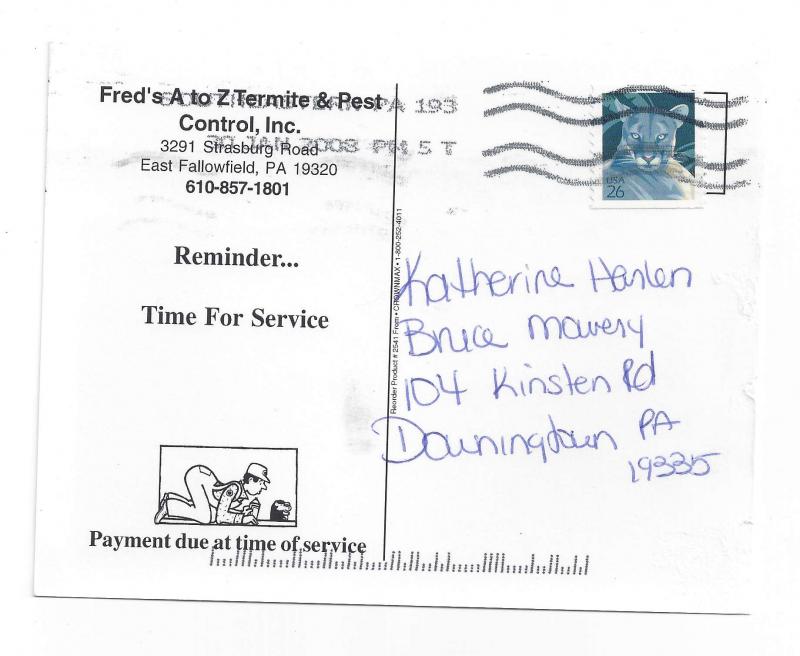 Fred's A to Z Termite & Pest
Control, Inc.
3291 Strasburg Road
East Fallowfield, PA 19320
610-857-1801
SOUTHEASTERN PA 193
30 JAN 2008 PM 5 T
USA
26
Reminder...
Time For Service
Reorder Product # 2541 From • CROWNMAX • 1-800-252-4011
Katherine Hanlen
Bruce Mowery
104 Kinsten Rd
Downingtown PA
19335
Payment due at time of service